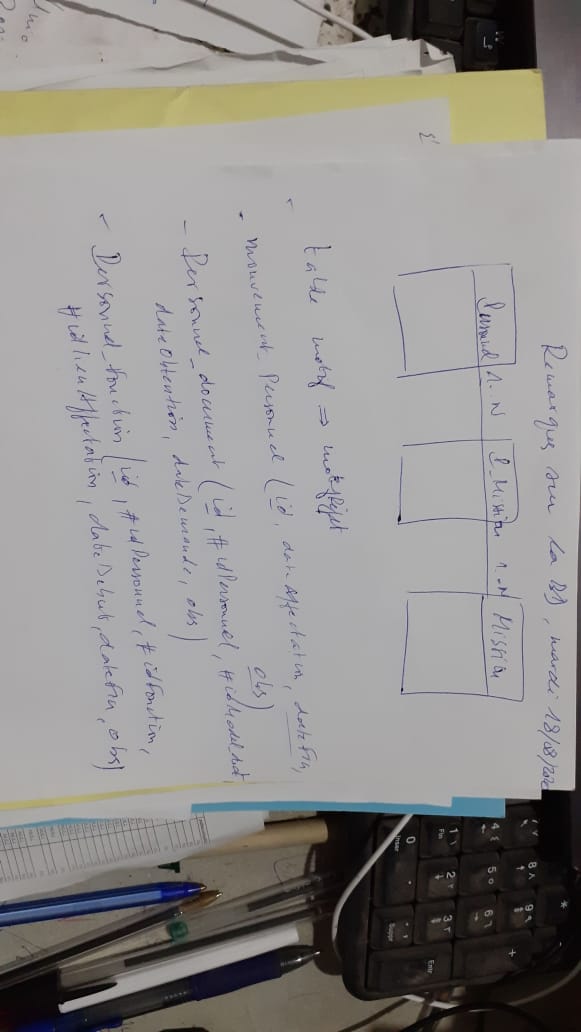 Remarques sur la BD, mardi 18/08/202
Personnel 1..N P_Mission 1..N Mission
table motif ⇒ motifRejet
mouvement_Personnel (id, dateAffectation, dateFin,
obs)
- Personnel_document (id, #idPersonnel, #idModel_doct
dateObtention, dateDemande, obs)
- Personnel_fonction (id, #idPersonnel, #idFonction,
#idLieuAffectation, dateDebut, dateFin, obs)
*
8
9
+
4
5
6
1
Fin
2
3
Entr
0
Inser
Suppr